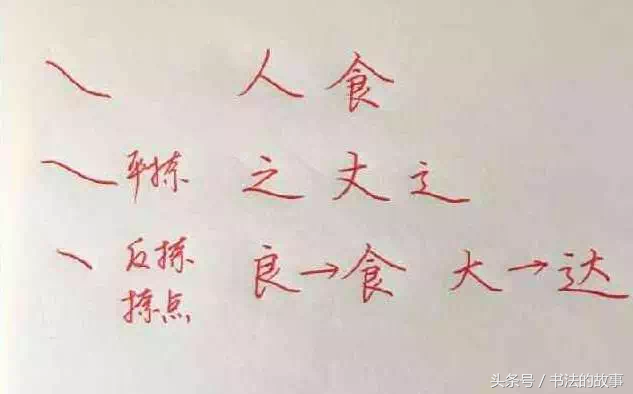 人 食
平捺 之 丈 辶
反捺 良→食 大→达
捺点
头条号 / 书法的故事